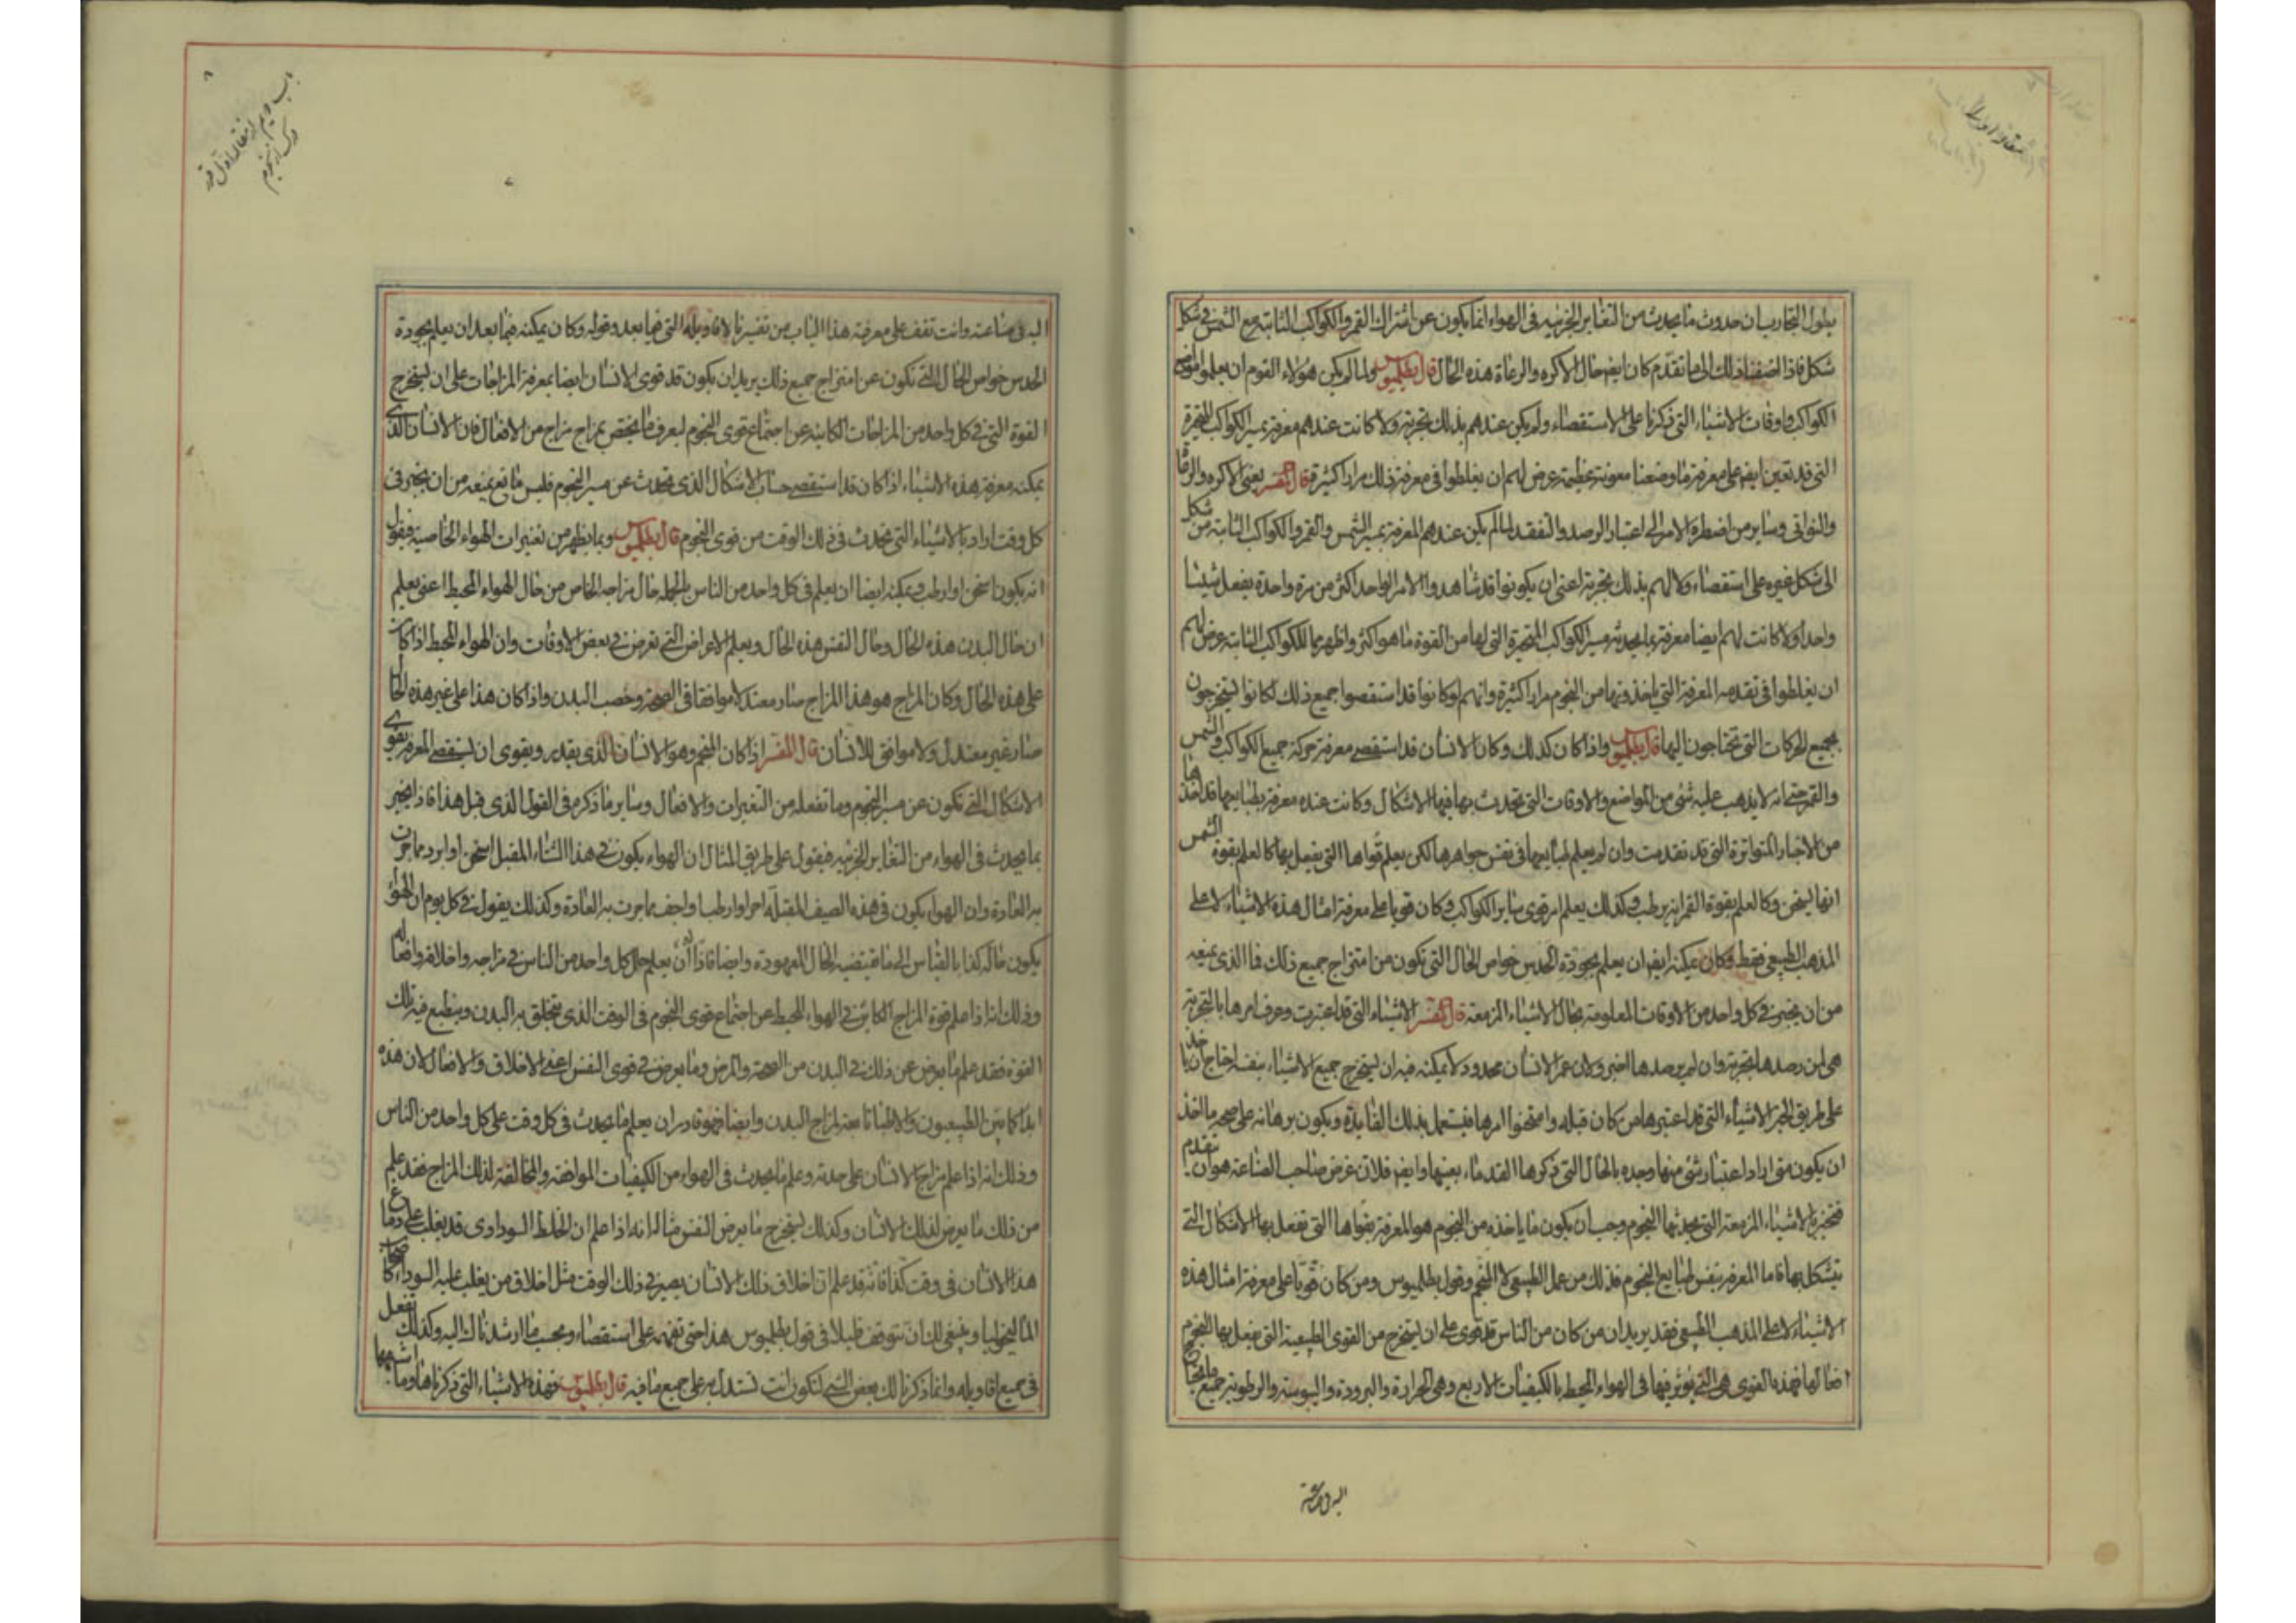 بطول التجارب ان حدوث ما يحدث من التغاير الجزئيه فى الهواء انما يكون عن اشتراك القمر والكواكب الثابتة مع الشمس فى شكل
شكل فاذا اضفنا ذلك الى ما تقدّم كان ايضا حال الاكره والرعاة هذه الحال قال بطلميوس ولما لم يكن هؤلاء القوم ان يعلموا مواضع
الكواكب واوقات الاشياء التى ذكرنا على الاستقصاء ولم يكن عندهم بذلك تجربة ولا كانت عندهم معرفة بمسير الكواكب المتحيرة
التى قد تعين ايضا على معرفة ما وصفنا معونة عظيمة عرض لهم ان يغلطوا فى معرفة ذلك مرارا كثيرة قال المفسر يعنى الاكره والرعاة
والنواتى وساير من اضطره الامر الى اعتبار الرصد والتفقد لما لم يكن عندهم المعرفة بمسير الشمس والقمر والكواكب الثابتة من شكل
الى شكل غيره على استقصاء ولا لهم بذلك تجربة اعنى ان يكونوا قد شاهدوا الامر الواحد اكثر من مرة واحدة يفعل شيئا
واحدا ولا كانت لهم ايضا معرفة بما يحدثه مسير الكواكب المتحيرة التى لها من القوة ما هو اكثر واظهر مما للكواكب الثابتة عرض لهم
ان يغلطوا فى تقدمه المعرفة التى ياخذونها من النجوم مرارا كثيرة وانهم لو كانوا قد استقصوا جميع ذلك لكانوا يستخرجون
جميع الحركات التى تحتاجون اليها قال بطلميوس واذا كان كذلك وكان الانسان قد استقصى معرفة حركة جميع الكواكب والشمس
والقمر حتى انه لا يذهب عليه شئ من المواضع والاوقات التى تحدث بها فيها الاشكال وكانت عنده معرفة بطبايعها قد اخذها
من الاخبار المتواترة التى قد تقدمت وان لم يعلم طبايعها فى نفس جواهرها لكن يعلم قواها التى يفعل بها كالعلم بقوة الشمس
انها يسخن وكالعلم بقوة القمر انه يرطب وكذلك يعلم امر قوى ساير الكواكب وكان قويا على معرفة امثال هذه الاشياء لا على
المذهب الطبيعى فقط وكان يمكنه ايضا ان يعلم بجودة الحدس خواص الحال التى تكون من امتزاج جميع ذلك فما الذى يمنعه
من ان يخبر فى كل واحد من الاوقات المعلومة بحال الاشياء المزمعة قال المفسر الاشياء التى قد اعتبرت وعرف امرها بالتجربة
هى لمن رصدها تجربة وان لم يرصدها الخبر ولان عمر الانسان محدود لا يمكنه فيه ان يستخرج جميع الاشياء بنفسه احتاج ان ياخذ
على طريق الخبر الاشياء التى قد اعتبرها من كان قبله وامتحنوا امرها فيستعمل بذلك الفايدة ويكون برهانه على صحة ما اخذ
ان يكون متى اراد اعتبار شئ منها وجده بالحال التى ذكرها القدماء بعينها وايضا فلان غرض صاحب الصناعة هو ان يتقدم
فتخبر بالاشياء المزمعة التى يحدثها النجوم وجب ان يكون ما ياخذه من النجوم هو المعرفة بقواها التى تفعل بها الاشكال التى
تتشكل بها فاما المعرفة بنفس طبايع النجوم فذلك من عمل الطبيعى لا المنجم وقول بطلميوس ومن كان قويا على معرفة امثال هذه
الاشياء لا على المذهب الطبيعى فقد يريد ان من كان من الناس قد قوى على ان يستخرج من القوى الطبيعية التى يفعل بها النجوم
افعالها فهذه القوى هى التى يؤثر فيها فى الهواء المحيط بالكيفيات الاربع وهى الحرارة والبرودة واليبوسة والرطوبة جميع ما يحتاج
اليه فى صناعته
اليه فى صناعته وانت تقف على معرفة هذا الباب من تفسيرنا لاقاويله التى فيما بعد وقوله وكان يمكنه فيما بعد ان يعلم بجودة
الحدس خواص الحال التى تكون عن امتزاج جميع ذلك يريد ان يكون قد قوى الانسان ايضا بمعرفة المزاجات على ان يستخرج
القوة التى فى كل واحد من المزاجات الكاينة عن اجتماع قوى النجوم ليعرف ما يختص بمزاج مزاج من الافعال فان الانسان الذى
يمكنه معرفة هذه الاشياء اذا كان قد استقصى حساب الاشكال الذى تحدث عن مسير النجوم فليس مانع يمنعه من ان يخبر فى
كل وقت اراد بالاشياء التى تحدث فى ذلك الوقت من قوى النجوم قال بطلميوس وبما يظهر من تغيرات الهواء الخاصية فيقول
انه يكون اسخن او ارطب ويمكنه ايضا ان يعلم فى كل واحد من الناس بالجملة حال مزاجه الخاص من حال الهواء المحيط اعنى يعلم
ان حال البدن هذه الحال وحال النفس هذه الحال ويعلم الاعراض التى تعرض فى بعض الاوقات وان الهواء المحيط اذا كان
على هذه الحال وكان المزاج هو هذا المزاج صار معتدلا موافقا فى الصحة وخصب البدن واذا كان هذا على غير هذه الحال
صار غير معتدل ولا موافق للانسان قال المفسر اذا كان المنجم وهو الانسان الذى يقدر ويقوى ان يستقصى المعرفة بقوى
الاشكال التى تكون عن مسير النجوم وما تفعله من التغيرات والافعال وساير ما ذكره فى القول الذى قبل هذا فاذا يخبر
بما يحدث فى الهواء من التغاير الجزئيه فيقول على طريق المثال ان الهواء يكون فى هذا الشتاء المقبل اسخن او ابرد مما جرت
به العادة وان الهواء يكون فى هذه الصيف المقبلة احر او ارطب او اجف مما جرت به العادة وكذلك يقول فى كل يوم ان الهواء
يكون حاله كذا بالقياس الى ما تقتضيه الحال المعهودة وايضا فاذا له ان يعلم حال كل واحد من الناس فى مزاجه واخلاقه وافعاله
وذلك انه اذا علم قوة المزاج الكائن فى الهواء المحيط عن اجتماع قوى النجوم فى الوقت الذى يتخلق به البدن وينطبع فيه تلك
القوة فقد علم ما يعرض عن ذلك فى البدن من الصحة والمرض وما يعرض فى قوى النفس اعنى الاخلاق والافعال لان هذه
ابدا كما بين الطبيعيون والاطبا تابعة لمزاج البدن وايضا فهو قادر ان يعلم ما يحدث فى كل وقت على كل واحد من الناس
وذلك انه اذا علم مزاج الانسان على حدته وعلم ما يحدث فى الهواء من الكيفيات الموافقة والمخالفة لذلك المزاج فقد علم
من ذلك ما يعرض لذلك الانسان وكذلك يستخرج ما يعرض النفس مثاله انه اذا علم ان الخلط السوداوى قد يغلب على دماغ
هذا الانسان فى وقت كذا فانه قد علم ان اخلاق ذلك الانسان يصير فى ذلك الوقت مثل اخلاق من يغلب عليه السوداء كاصحاب
الماليخوليا وينبغى لك ان تتوقف قليلا فى قول بطلميوس هذا حتى تفهمه على استقصاء وبحسب ما ارشدناك اليه وكذلك تفعل
فى جميع اقاويله وانما ذكرنا لك بعض الشئ لتكون انت تستدل به على جميع ما فيه قال بطلميوس فهذه الاشياء التى ذكرناها وما اشبهها